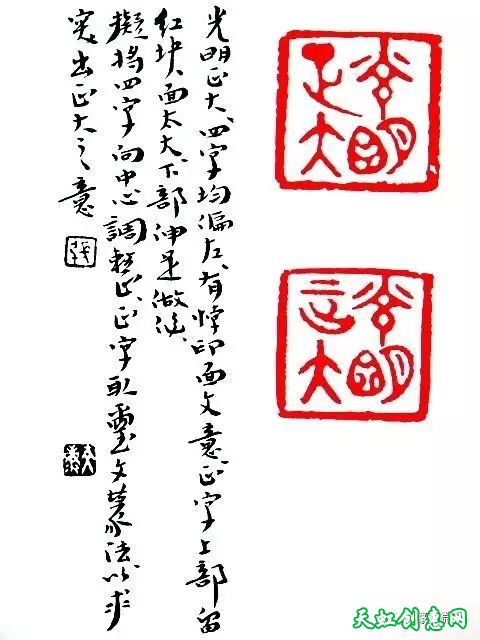 光明正大四字均偏左有悖印面文意正字上部留
红块面太大下部伸足做
擬将四字向中心調整正字取璽文篆法以求
突出正大之意
光明正大
光明正大
天虹创意网